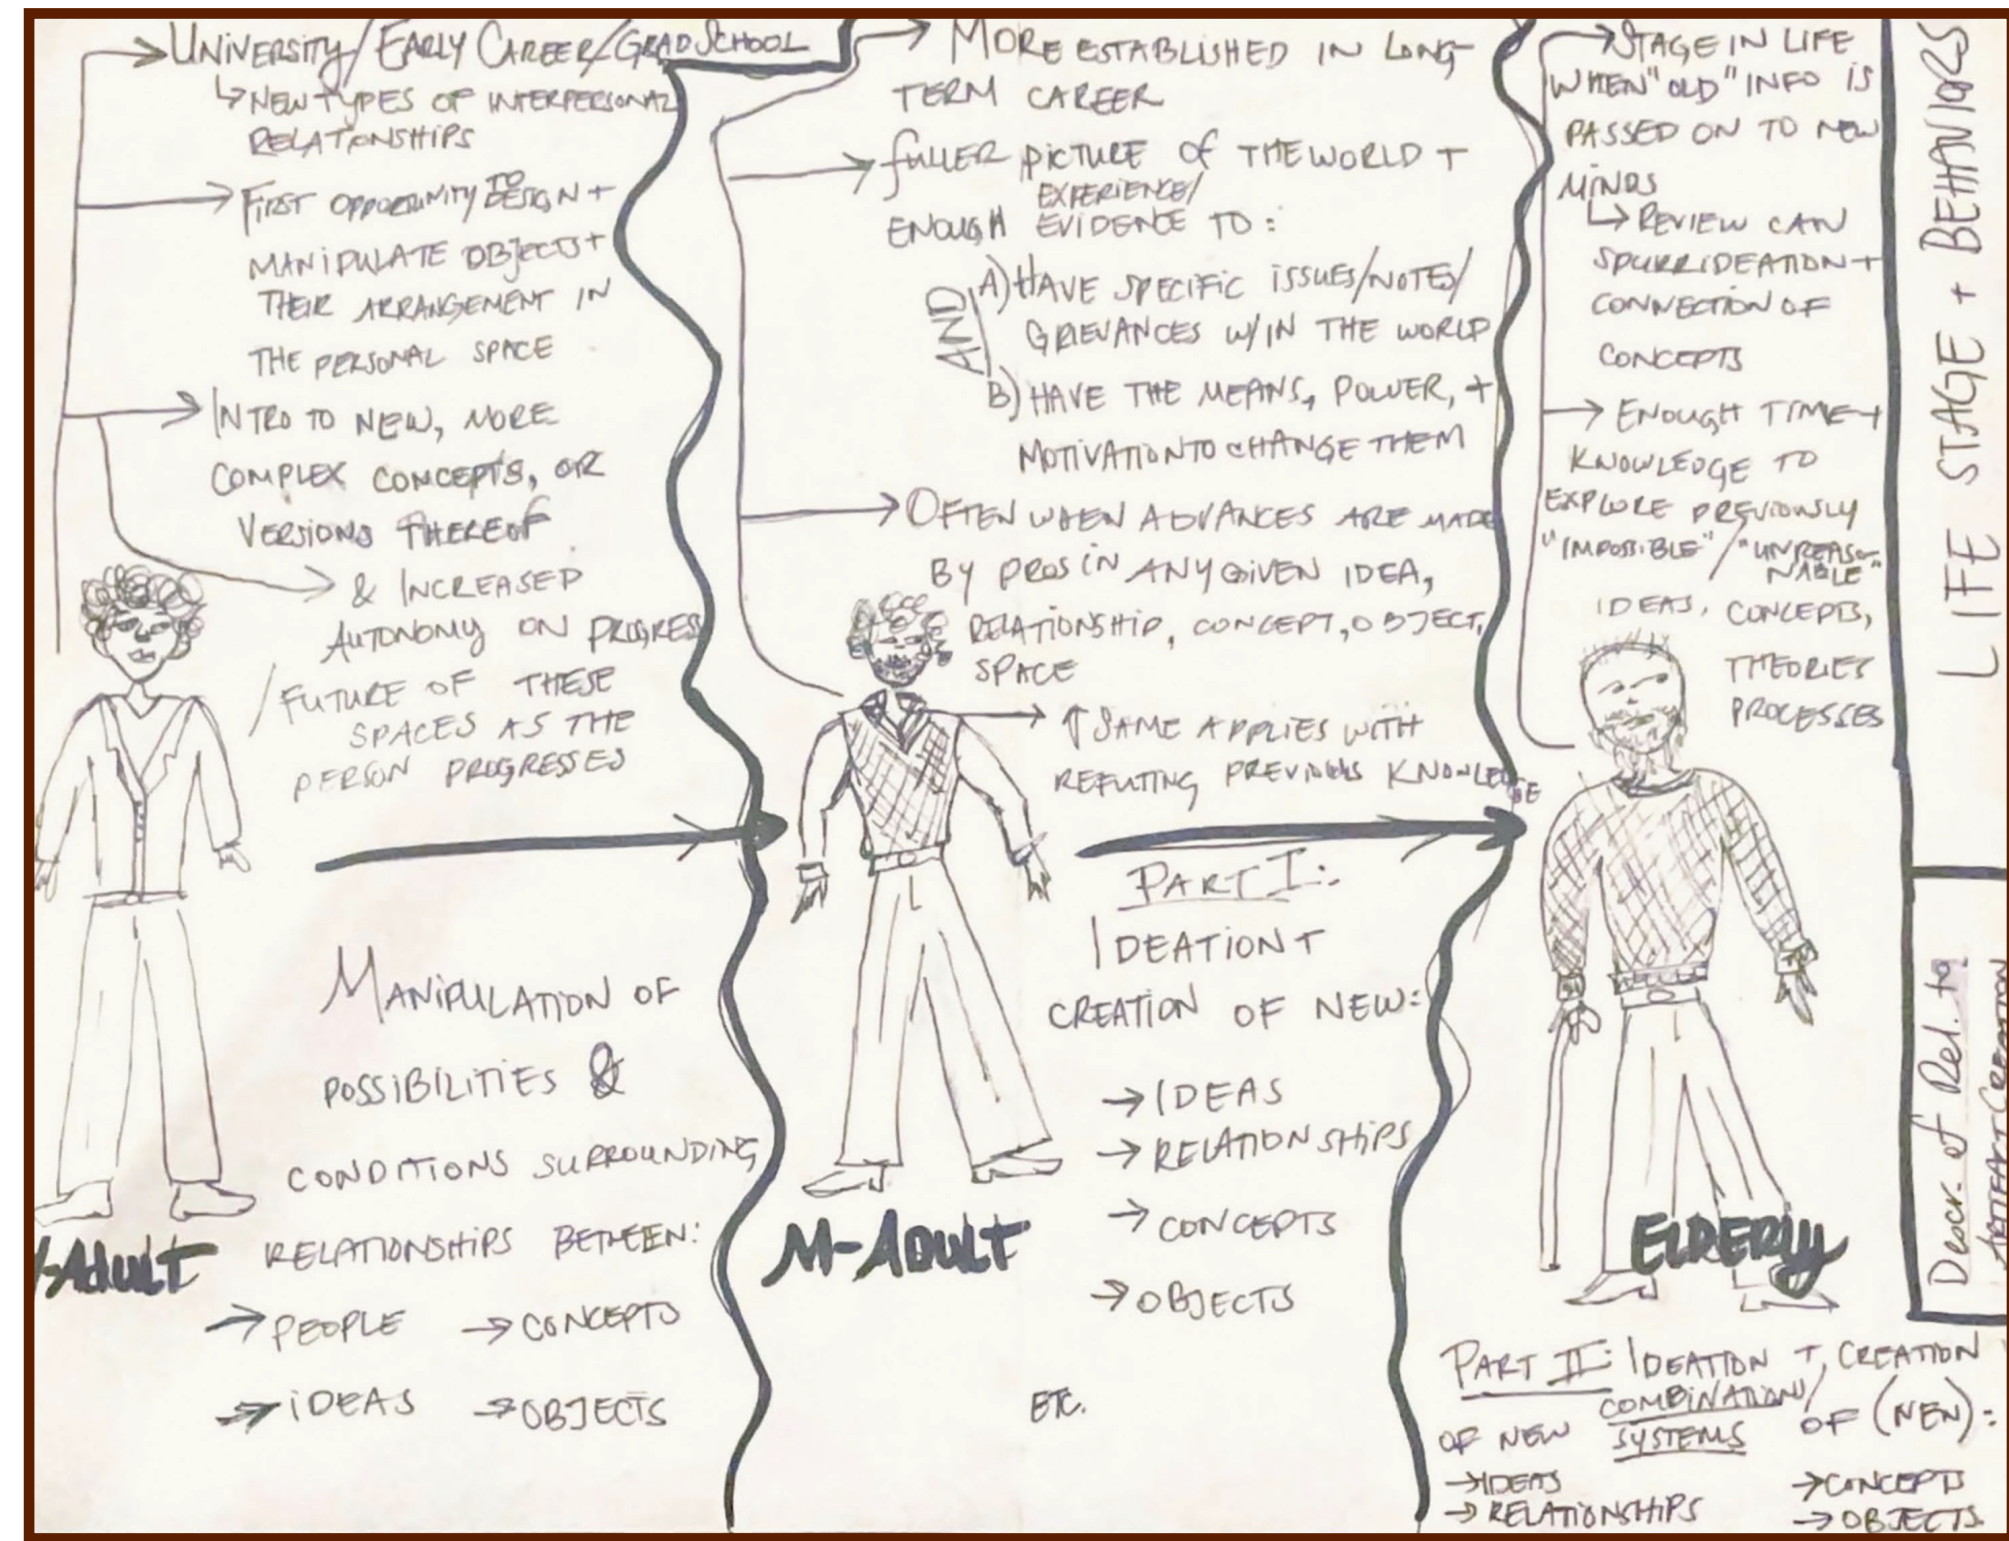 →UNIVERSITY/EARLY CAREER/GRAD SCHOOL
↳NEW TYPES OF INTERPERSONAL
RELATIONSHIPS
→FIRST OPPORTUNITY TO DESIGN +
MANIPULATE OBJECTS +
THEIR ARRANGEMENT IN
THE PERSONAL SPACE
→INTRO TO NEW, MORE
COMPLEX CONCEPTS, OR
VERSIONS THEREOF
→& INCREASED
AUTONOMY ON PROGRESS
/FUTURE OF THESE
SPACES AS THE
PERSON PROGRESSES
MANIPULATION OF
POSSIBILITIES &
CONDITIONS SURROUNDING
RELATIONSHIPS BETWEEN:
→PEOPLE →CONCEPTS
→IDEAS →OBJECTS
-ADULT
→MORE ESTABLISHED IN LONG-
TERM CAREER
→FULLER PICTURE OF THE WORLD +
EXPERIENCE/
ENOUGH EVIDENCE TO:
AND
A) HAVE SPECIFIC ISSUES/NOTES/
GRIEVANCES W/IN THE WORLD
B) HAVE THE MEANS, POWER, +
MOTIVATION TO CHANGE THEM
→OFTEN WHEN ADVANCES ARE MADE
BY PROS IN ANY GIVEN IDEA,
RELATIONSHIP, CONCEPT, OBJECT,
SPACE
→↑SAME APPLIES WITH
REFUTING PREVIOUS KNOWLEDGE
PART I:
IDEATION +
CREATION OF NEW:
→IDEAS
→RELATIONSHIPS
→CONCEPTS
→OBJECTS
ETC.
M-ADULT
→STAGE IN LIFE
WHEN "OLD" INFO IS
PASSED ON TO NEW
MINDS
↳REVIEW CAN
SPUR IDEATION +
CONNECTION OF
CONCEPTS
→ENOUGH TIME +
KNOWLEDGE TO
EXPLORE PREVIOUSLY
"IMPOSSIBLE"/"UNREASO-
NABLE"
IDEAS, CONCEPTS,
THEORIES
PROCESSES
ELDERLY
PART II: IDEATION +, CREATION
OF NEW COMBINATION/
SYSTEMS OF (NEW):
→IDEAS →CONCEPTS
→RELATIONSHIPS →OBJECTS
LIFE STAGE + BEHAVIORS
Descr. of Rel. to
ARTIFACT CREATION